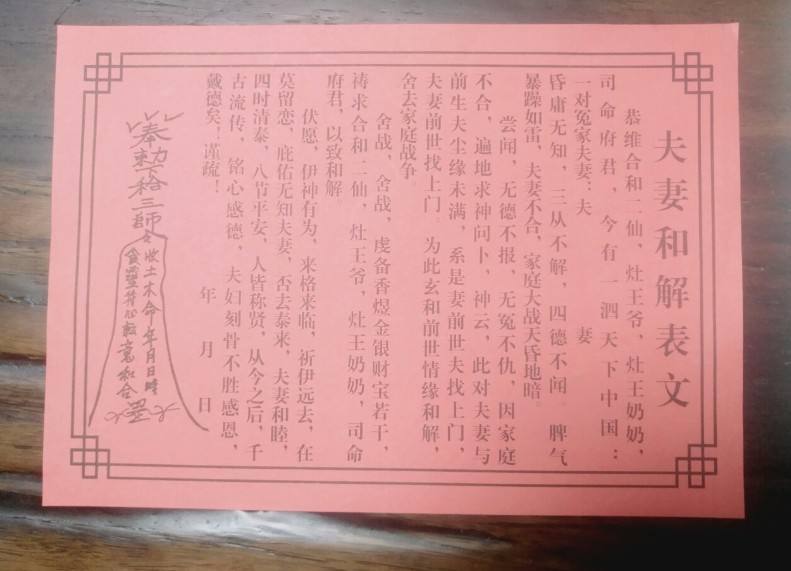 夫妻和解表文
恭维合和二仙，灶王爷，灶王奶奶，
司命府君，今有一泗天下中国：
一对冤家夫妻：夫 妻
昏庸无知，三从不解，四德不闻 脾气
暴躁如雷，夫妻不合，家庭大战天昏地暗。
尝闻，无德不报，无冤不仇，因家庭
不合，遍地求神问卜，神云，此对夫妻与
前生夫尘缘未满，系是妻前世夫找上门，
夫妻前世找上门 为此玄和前世情缘和解，
舍去家庭战争
舍战，舍战，虔备香煜金银财宝若干，
祷求合和二仙，灶王爷，灶王奶奶，司命
府君，以致和解
伏愿，伊神有为，来格来临，祈伊远去，在
莫留恋，庇佑无知夫妻，否去泰来，夫妻和睦，
四时清泰，八节平安，人皆称贤，从今之后，千
古流传，铭心感德，夫妇刻骨不胜感恩，
戴德矣！谨疏！
年 月 日
奉勅
三師
收土木命年月日時
和合